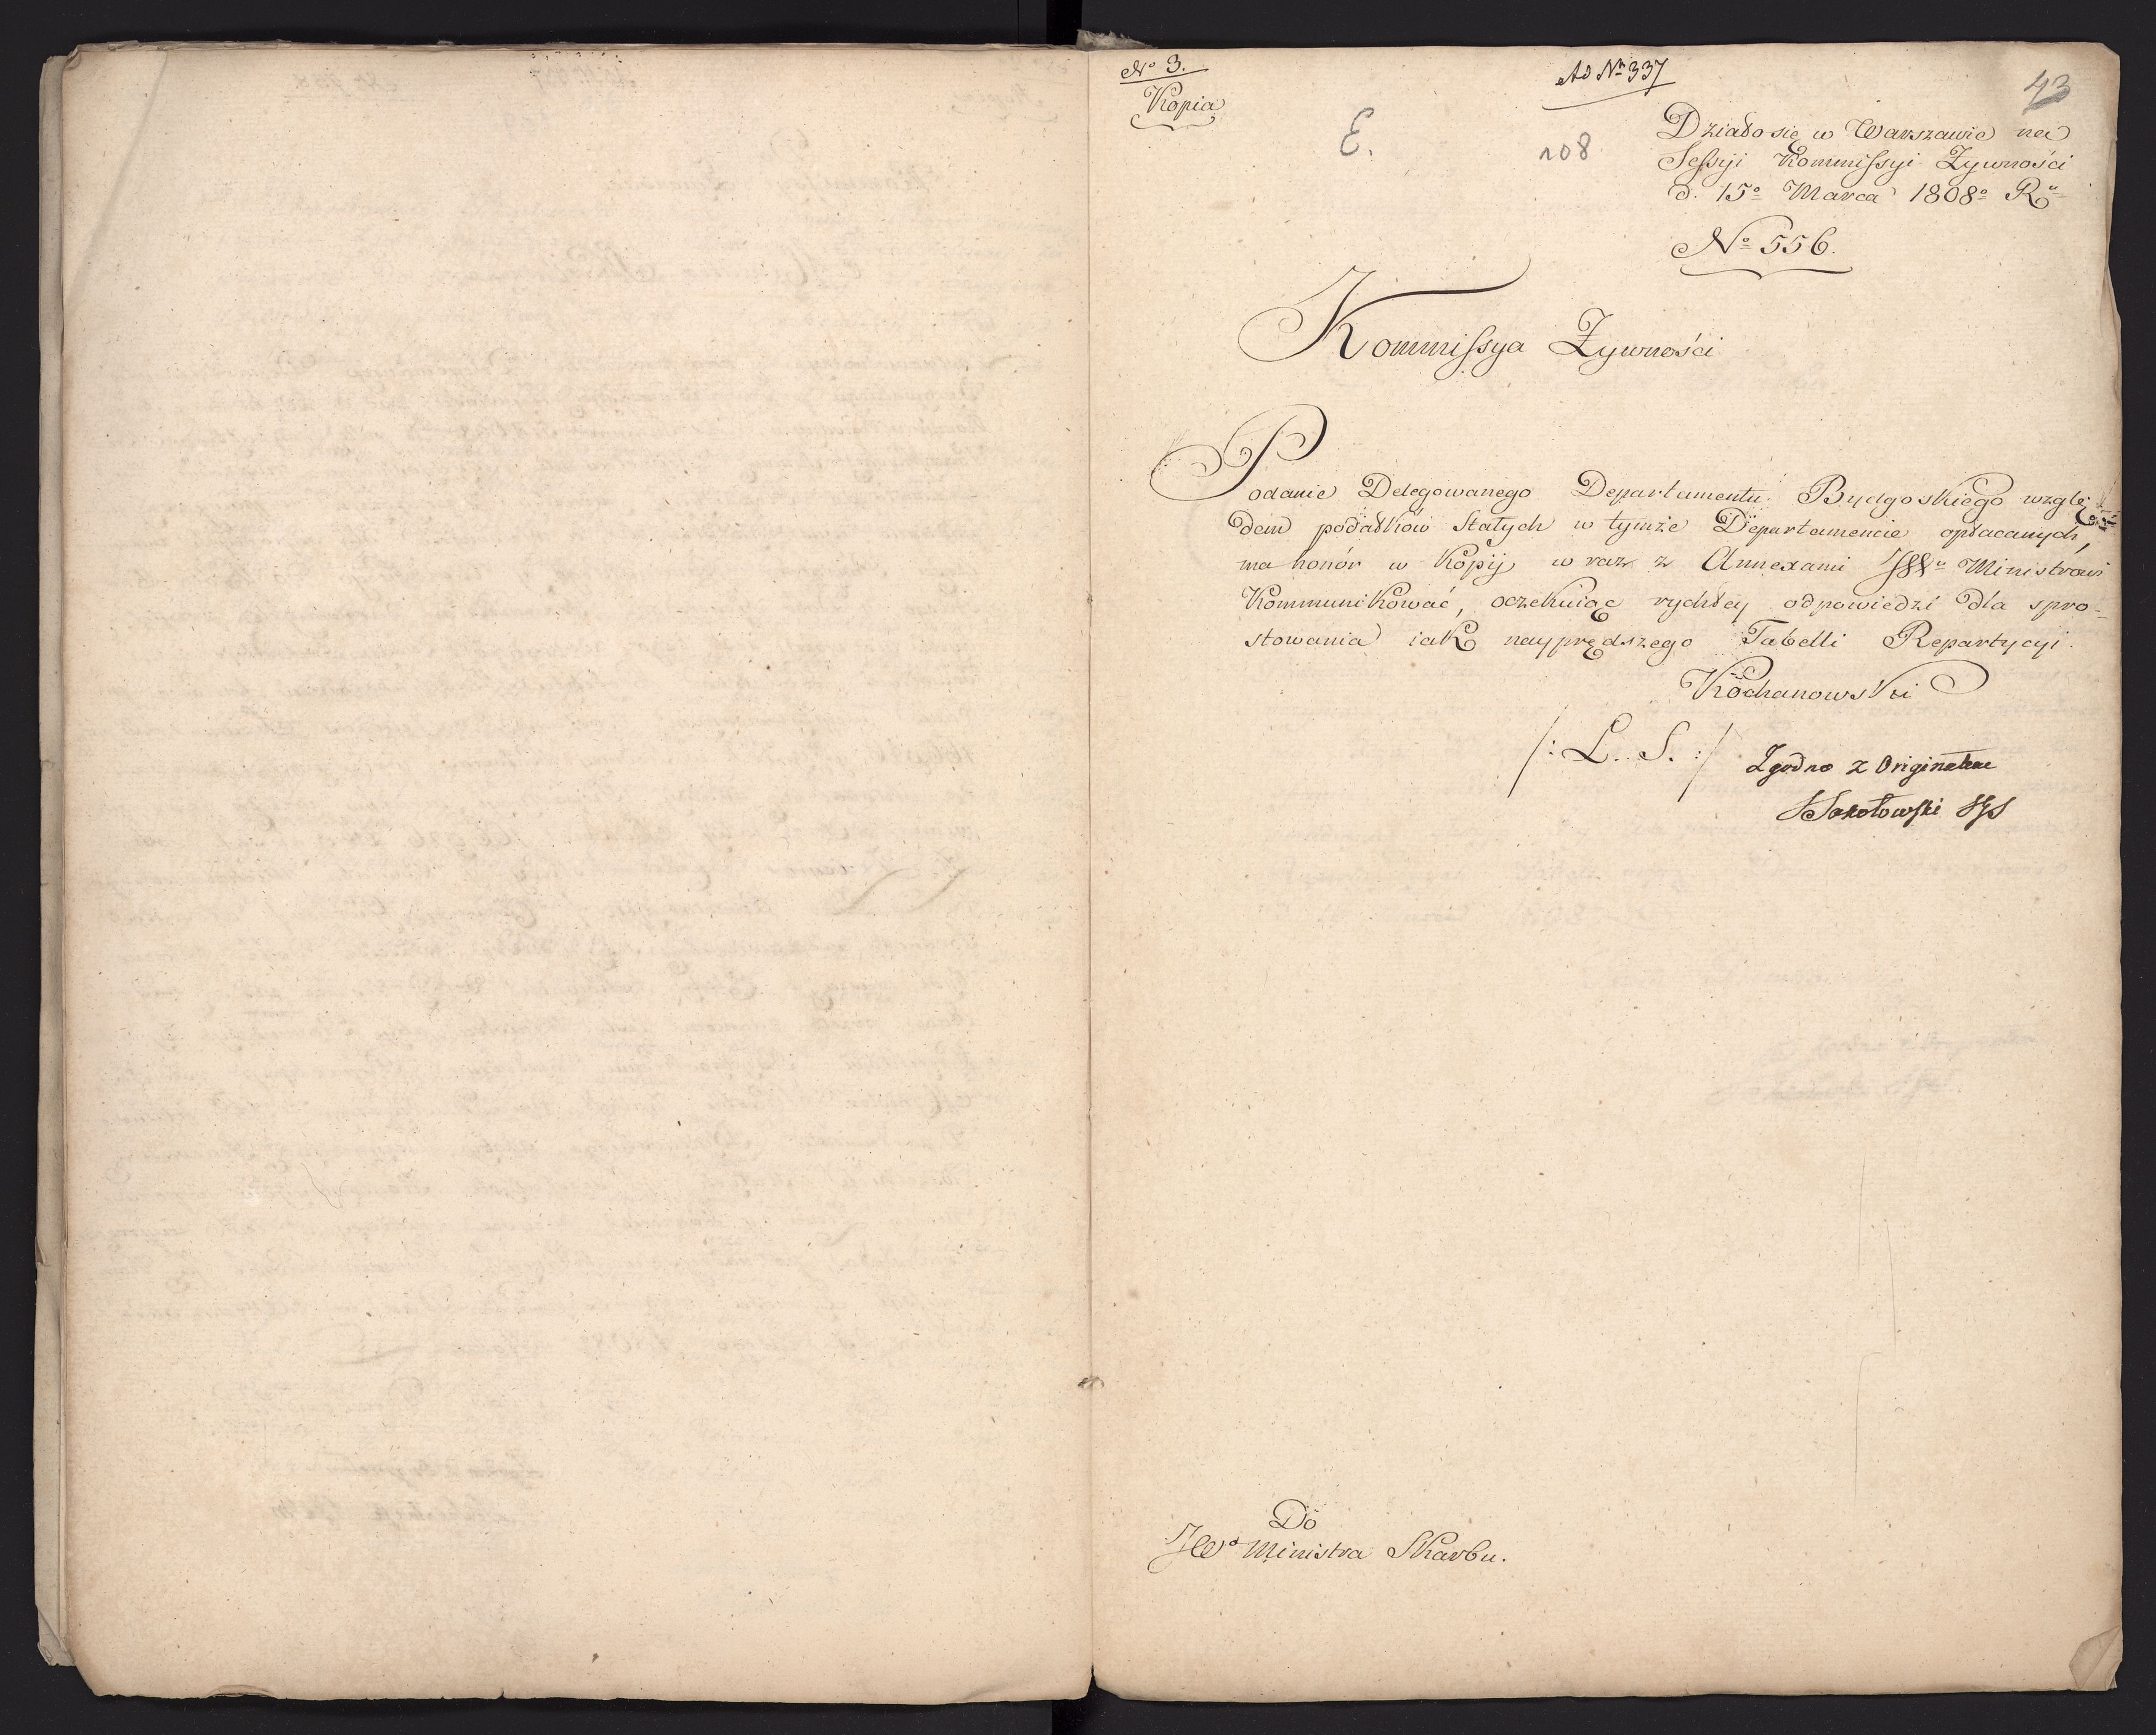 No 3.
Kopia
Ad No 337
43
E.
108
Działo się w Warszawie na
Sessyi Kommissyi Żywności
d. 15o Marca 1808o Ru
No 556.
Kommissya Żywności
Podanie Delegowanego Departamentu Bydgoskiego wzglę-
dem podatków Stałych w tymże Departamencie opłacanych,
ma honor w Kopij w raz z Annexami JWu Ministrowi
Kommunikować, oczekuiąc rychłey odpowiedzi dla spro-
stowania iak nayprędszego Tabelli Repartycyi.
Kochanowski
/: L. S. :/
Zgodno z Originałem
Sokołowski
Do
JWo Ministra Skarbu.